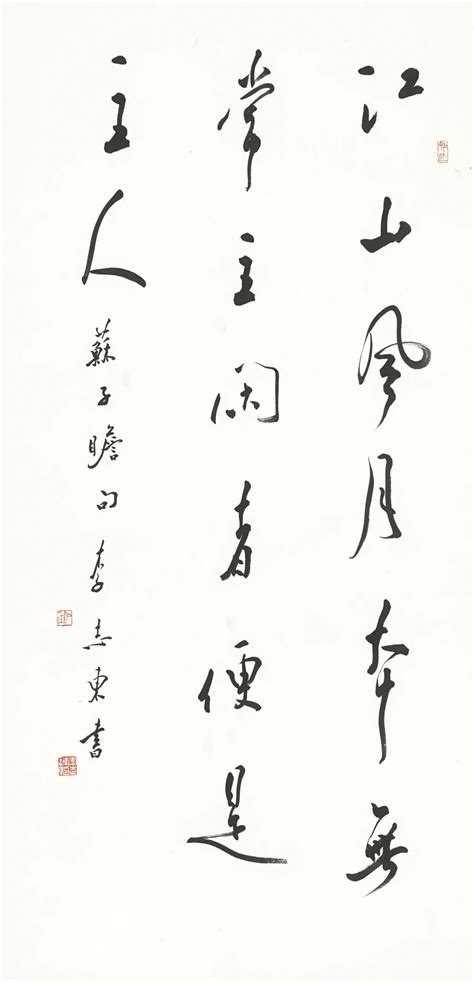 江山風月本無
常主閑者便是
主人
蘇子瞻句 李志東書